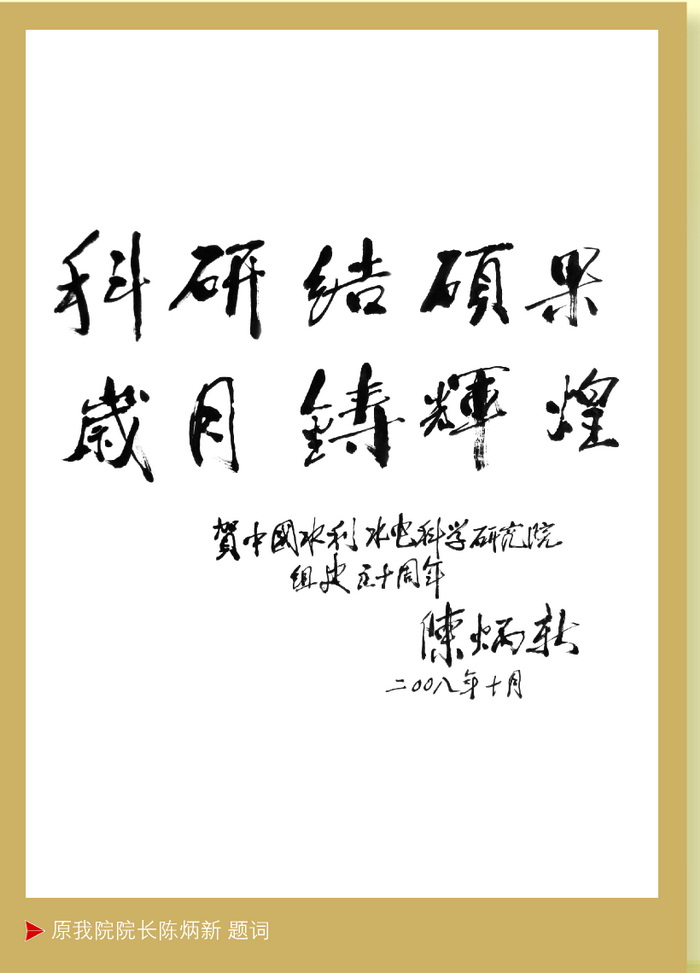 科研结碩果
歲月鑄輝煌
賀中國水利水电科学研究院
组史五十周年
陳炳新
二〇〇八年十月
原我院院长陈炳新 题词